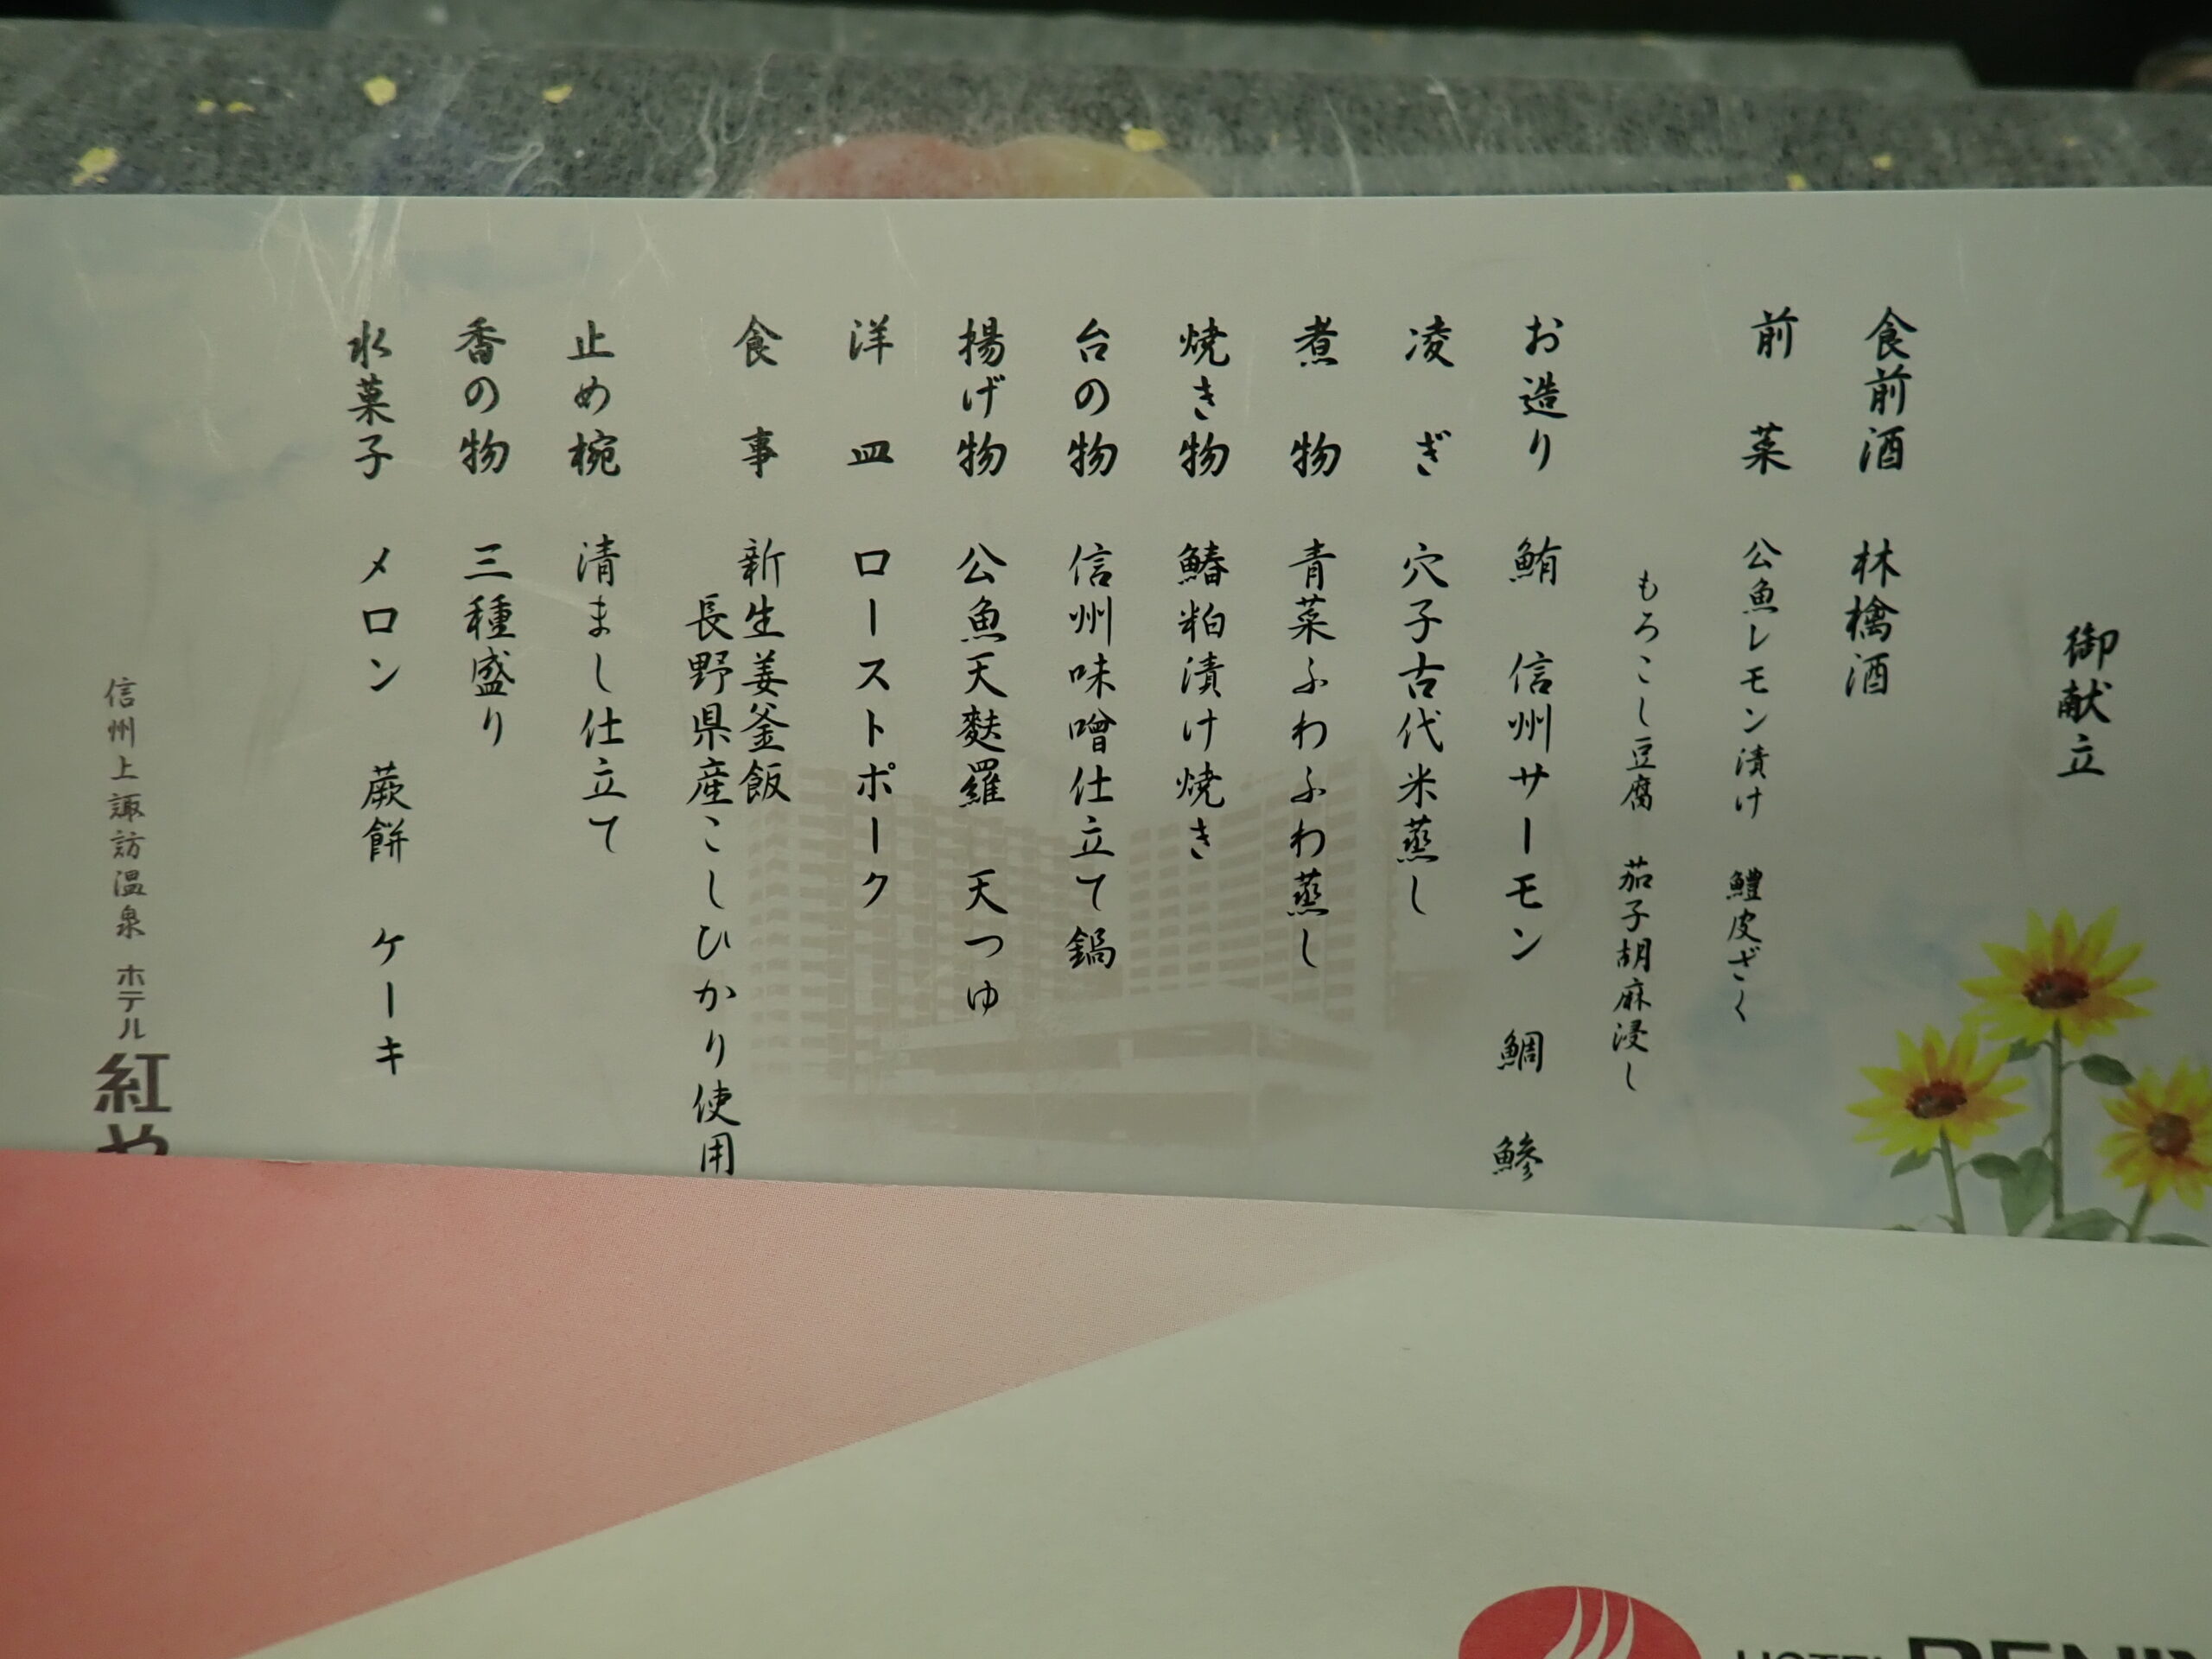 御献立
食前酒 林檎酒
前菜 公魚レモン漬け 鱧皮ざく
もろこし豆腐 茄子胡麻浸し
お造り 鮪 信州サーモン 鯛 鯵
凌ぎ 穴子古代米蒸し
煮物 青菜ふわふわ蒸し
焼き物 鰆粕漬け焼き
台の物 信州味噌仕立て鍋
揚げ物 公魚天麩羅 天つゆ
洋皿 ローストポーク
食事 新生姜釜飯
長野県産こしひかり使用
止め椀 清まし仕立て
香の物 三種盛り
水菓子 メロン 蕨餅 ケーキ
信州上諏訪温泉 ホテル 紅や